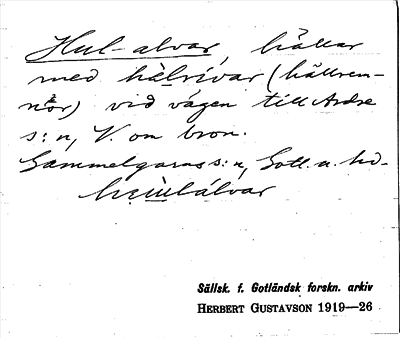 Hul-alvar, hällar
med hålrivar (hällren-
nor) vid vägen till Ardre
s:n, V. om bron.
Gammelgarns s:n, Gotl. n. hd.
Sällsk. f. Gotländsk forskn. arkiv
HERBERT GUSTAVSON 1919—26